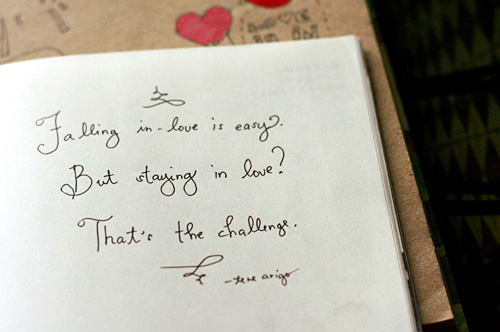 Falling in-love is easy.
But staying in love?
That's the challenge.
- tere arigo